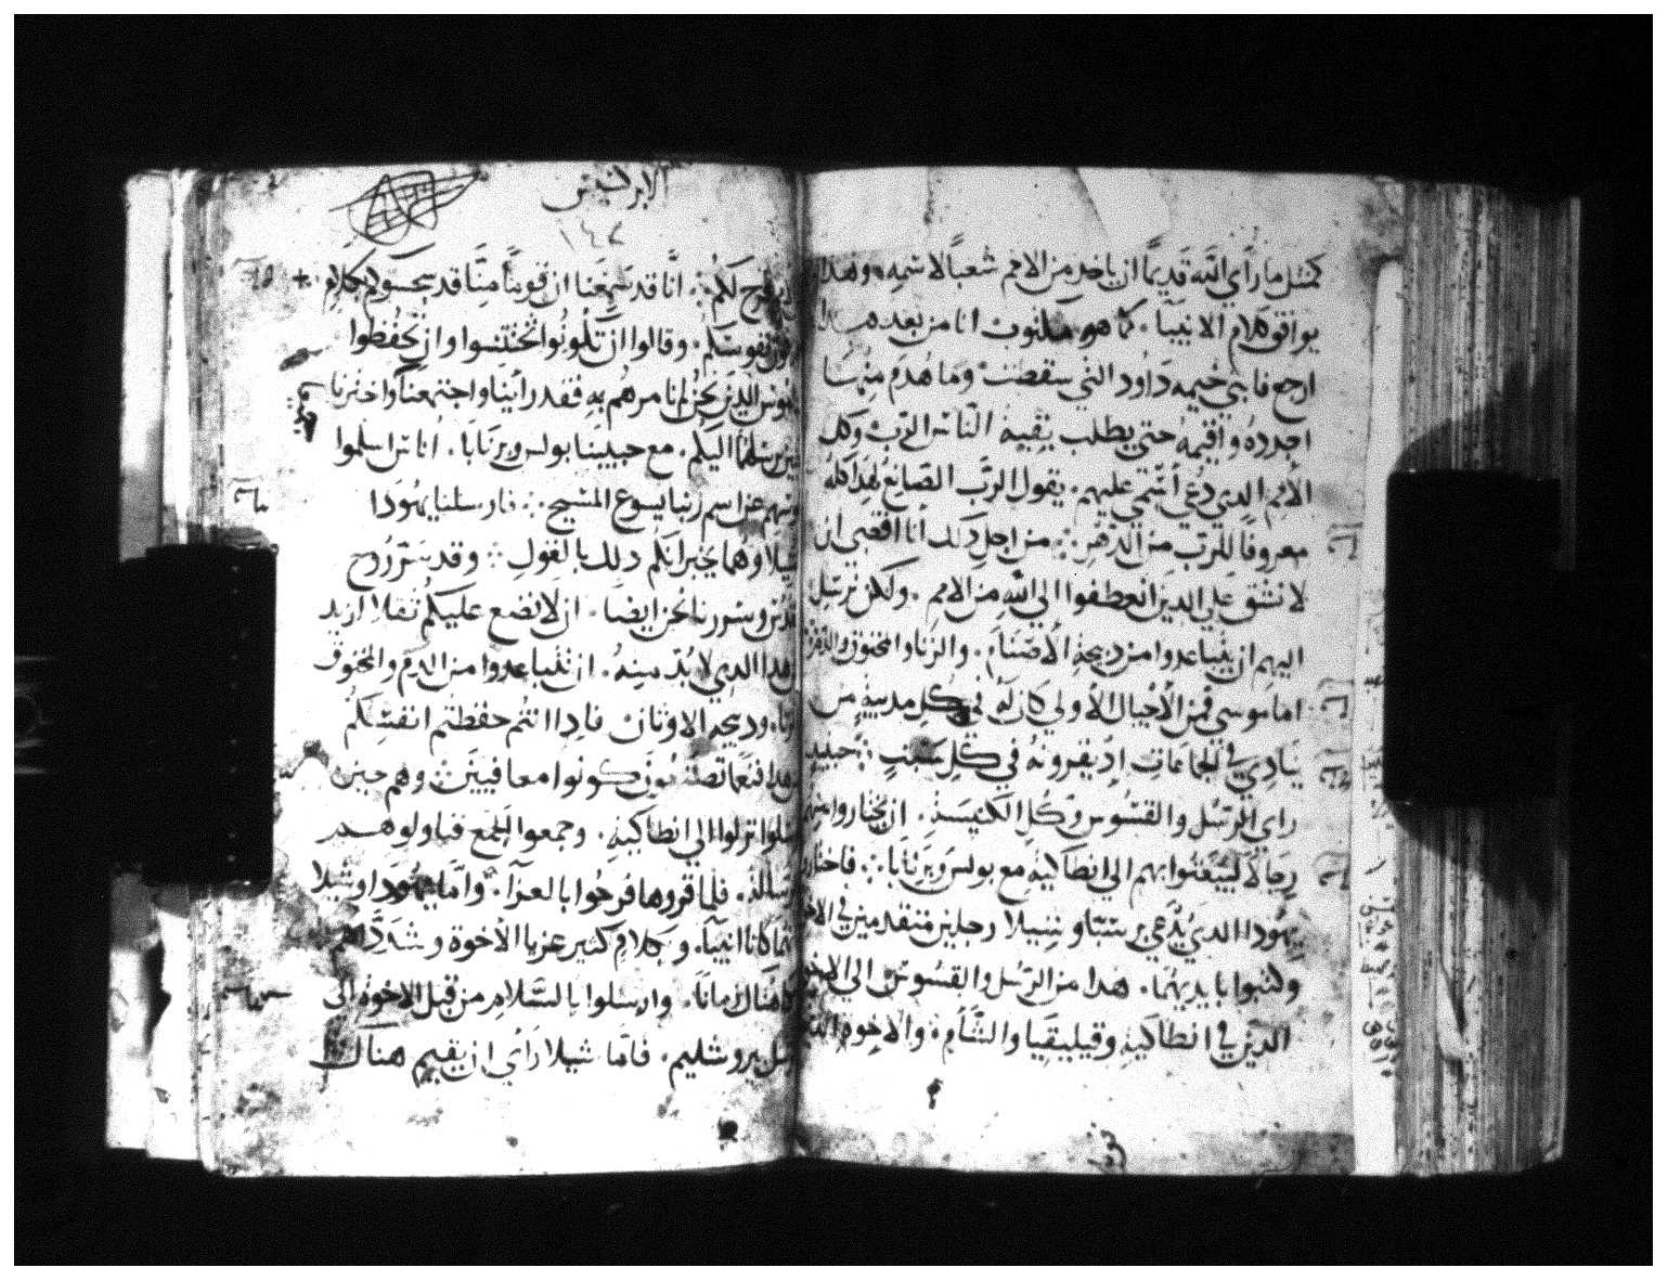 كمثل ما رأي الله قديمًا ان ياخد من الامم شعباً لاسمه وهدا
يوافق كلام الانبيآ. كما هو مكتوب انا من بعد هدا
ارجع فابني خيمه داود التي سقطت وما هدم منها
اجدده واقيمه حتي يطلب بقية الناس الرب وكل
الأمم الدي دعي أسمي عليهم. يقول الرب الصانع لهدا كله
معروفًا للرب من الدهر من اجل دلك انا اقضي ان
لا نشق علي الدين انعطفوا الي الله من الامم. ولكن نرسل
اليهم ان يتباعدوا من دبيحة الأصنام. والزنا والمخنوق والدم
اما موسي فمن الأجيال الأولي كان له في كل مدينة من
ينادي في الجماعات اد يقرونه في كل سبت حينيد
راي الرسل والقسوس وكل الكنيسة. ان يختاروا منهم
رجالاً ليبعتوا بهم الي انطاكية مع بولس وبرنابا فاختاروا
يهودا الدي يدعي برسبّا وشيلا رجلين متقدمين في
وكتبوا بايديهما. هدا من الرسل والقسوس الي الاخوة
الدين في انطاكية وقيليقيا والشأم والاخوه
الابركسيس
١٤٧
فرح لكم انّا قد سمعنا ان قوماً منّا قد سجسوكم بكلام
نفوسكم. وقالوا ان تكونوا تختتنوا وان تحفظوا
الدين نحن لم نامرهم به فقد رأينا واجتمعنا واخترنا
نرسلهما اليكم. مع حبيبينا بولس وبرنابا. أناس اسلموا
عن اسم ربنا يسوع المسيح فارسلنا يهودا
وشيلا وهما يخبرانكم دلك بالقول وقد سر روح
القدس وسررنا نحن ايضاً. ان لا نضع عليكم تقلاً ازيد
هدا الدي لا بد منه. ان تتباعدوا من الدم والمخنوق
ودبيحه الاوتان فادا انتم حفظتم انفسكم
هدا فنعمّا تصنعون كونوا معافيين وهم حين
ارسلوا نزلوا الي انطاكية. وجمعوا الجمع فناولوهم
الرسالة. فلما قروها فرحوا بالعزآ. وأمّا يهودا وشيلا
كانا انبيآ. وبكلام كتير عزيا الأخوة وشدداهم
هناك زماناً. وارسلوا بالسلام من قبل الاخوة الي
الرسل بيروشليم. فامّا شيلا رأي ان يقيم هناك